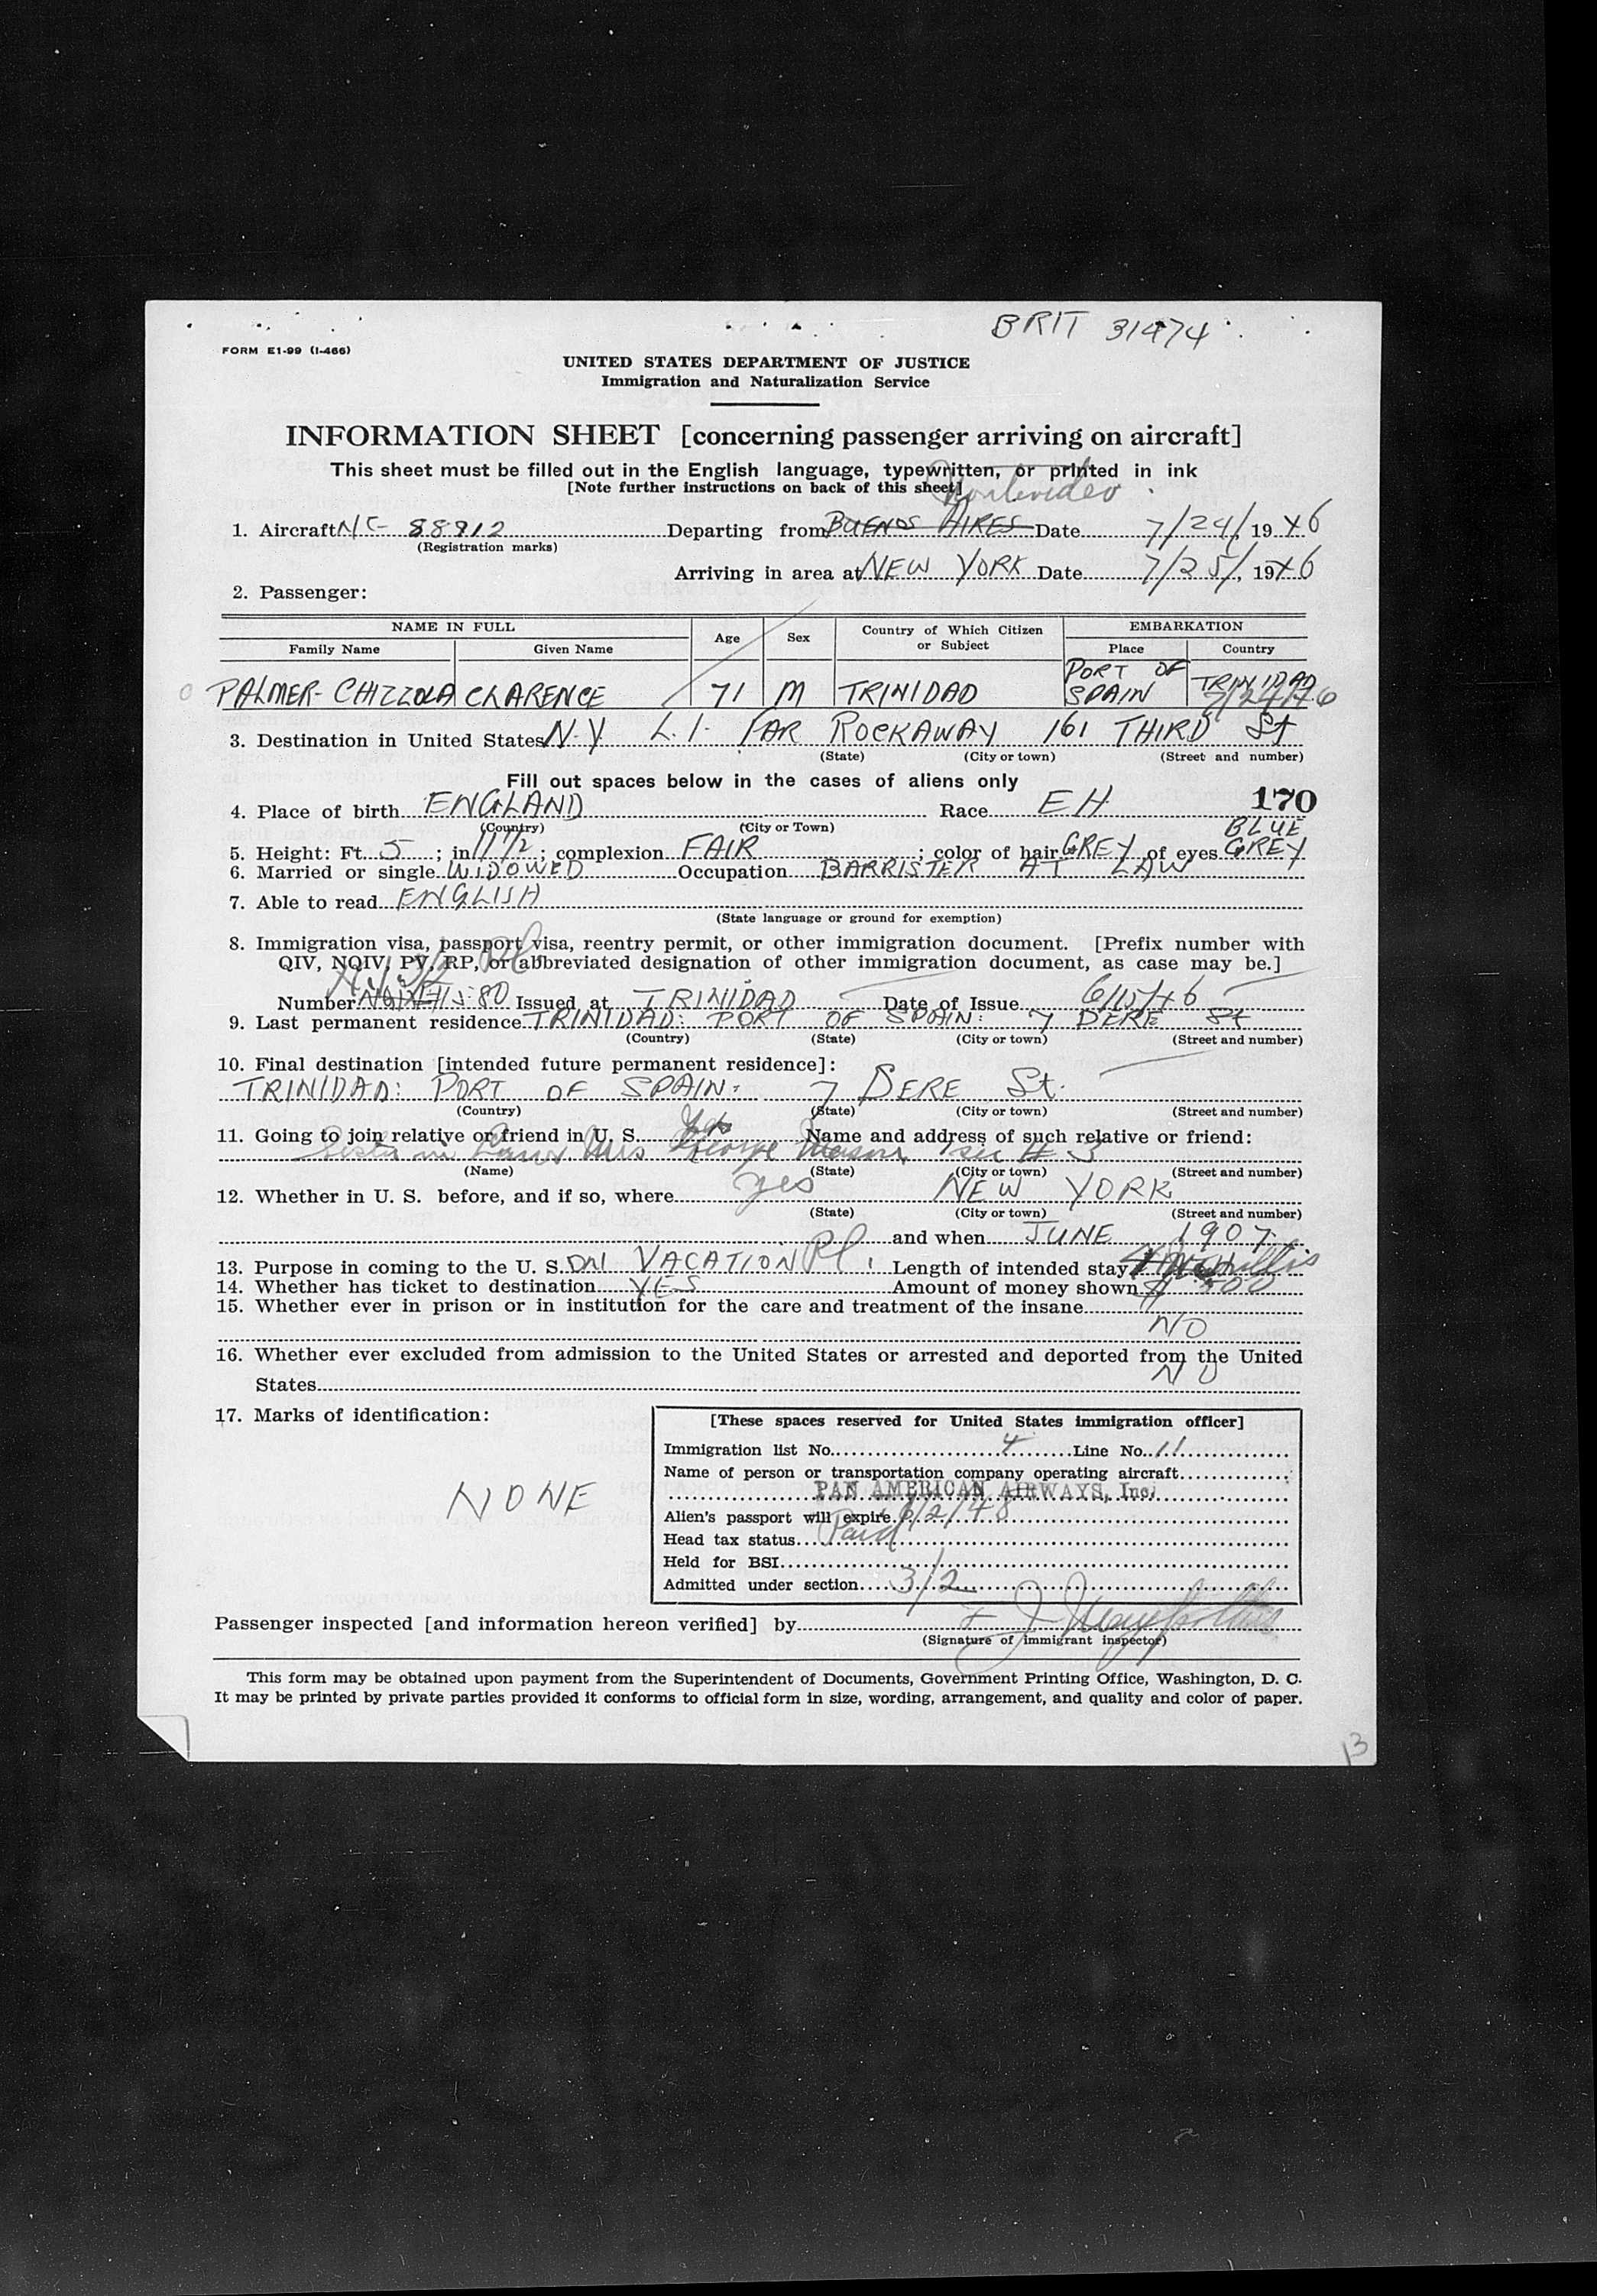 BRIT 31474
FORM E1-99 (I-466)
UNITED STATES DEPARTMENT OF JUSTICE
Immigration and Naturalization Service
INFORMATION SHEET [concerning passenger arriving on aircraft]
This sheet must be filled out in the English language, typewritten, or printed in ink
[Note further instructions on back of this sheet]
Montevideo
1. Aircraft NC- 88912 Departing from BUENOS AIRES Date 7/24/, 19 46
(Registration marks)
Arriving in area at NEW YORK Date 7/25/, 1946
2. Passenger:
NAME IN FULL Age Sex Country of Which Citizen or Subject EMBARKATION
Family Name Given Name Place Country
PALMER-CHIZZOLA CLARENCE 71 M TRINIDAD PORT OF SPAIN TRINIDAD
7/24/46
3. Destination in United States N.Y L.I. FAR ROCKAWAY 161 THIRD St
(State) (City or town) (Street and number)
Fill out spaces below in the cases of aliens only
4. Place of birth ENGLAND Race EH 170
(Country) (City or Town)
5. Height: Ft. 5; in 11 1/2; complexion FAIR; color of hair GREY of eyes BLUE GREY
6. Married or single WIDOWED Occupation BARRISTER AT LAW
7. Able to read ENGLISH
(State language or ground for exemption)
8. Immigration visa, passport visa, reentry permit, or other immigration document. [Prefix number with
QIV, NQIV, PV, RP, or abbreviated designation of other immigration document, as case may be.]
Number 1580 Issued at TRINIDAD Date of Issue 6/15/46
9. Last permanent residence TRINIDAD: PORT OF SPAIN: 7 DERE St
(Country) (State) (City or town) (Street and number)
10. Final destination [intended future permanent residence]:
TRINIDAD: PORT OF SPAIN: 7 DERE St.
(Country) (State) (City or town) (Street and number)
11. Going to join relative or friend in U. S. Yes Name and address of such relative or friend:
Sister in Law Mrs George Mason see # 3
(Name) (State) (City or town) (Street and number)
12. Whether in U. S. before, and if so, where yes NEW YORK
(State) (City or town) (Street and number)
and when JUNE 1907
13. Purpose in coming to the U. S. ON VACATION Pl. Length of intended stay
14. Whether has ticket to destination YES Amount of money shown $ 500
15. Whether ever in prison or in institution for the care and treatment of the insane
NO
16. Whether ever excluded from admission to the United States or arrested and deported from the United
States NO
17. Marks of identification:
NONE
[These spaces reserved for United States immigration officer]
Immigration list No. 4 Line No. 11
Name of person or transportation company operating aircraft
PAN AMERICAN AIRWAYS, Inc.
Alien's passport will expire 6/2/48
Head tax status Paid
Held for BSI
Admitted under section 3/2
Passenger inspected [and information hereon verified] by
(Signature of immigrant inspector)
This form may be obtained upon payment from the Superintendent of Documents, Government Printing Office, Washington, D. C.
It may be printed by private parties provided it conforms to official form in size, wording, arrangement, and quality and color of paper.
13